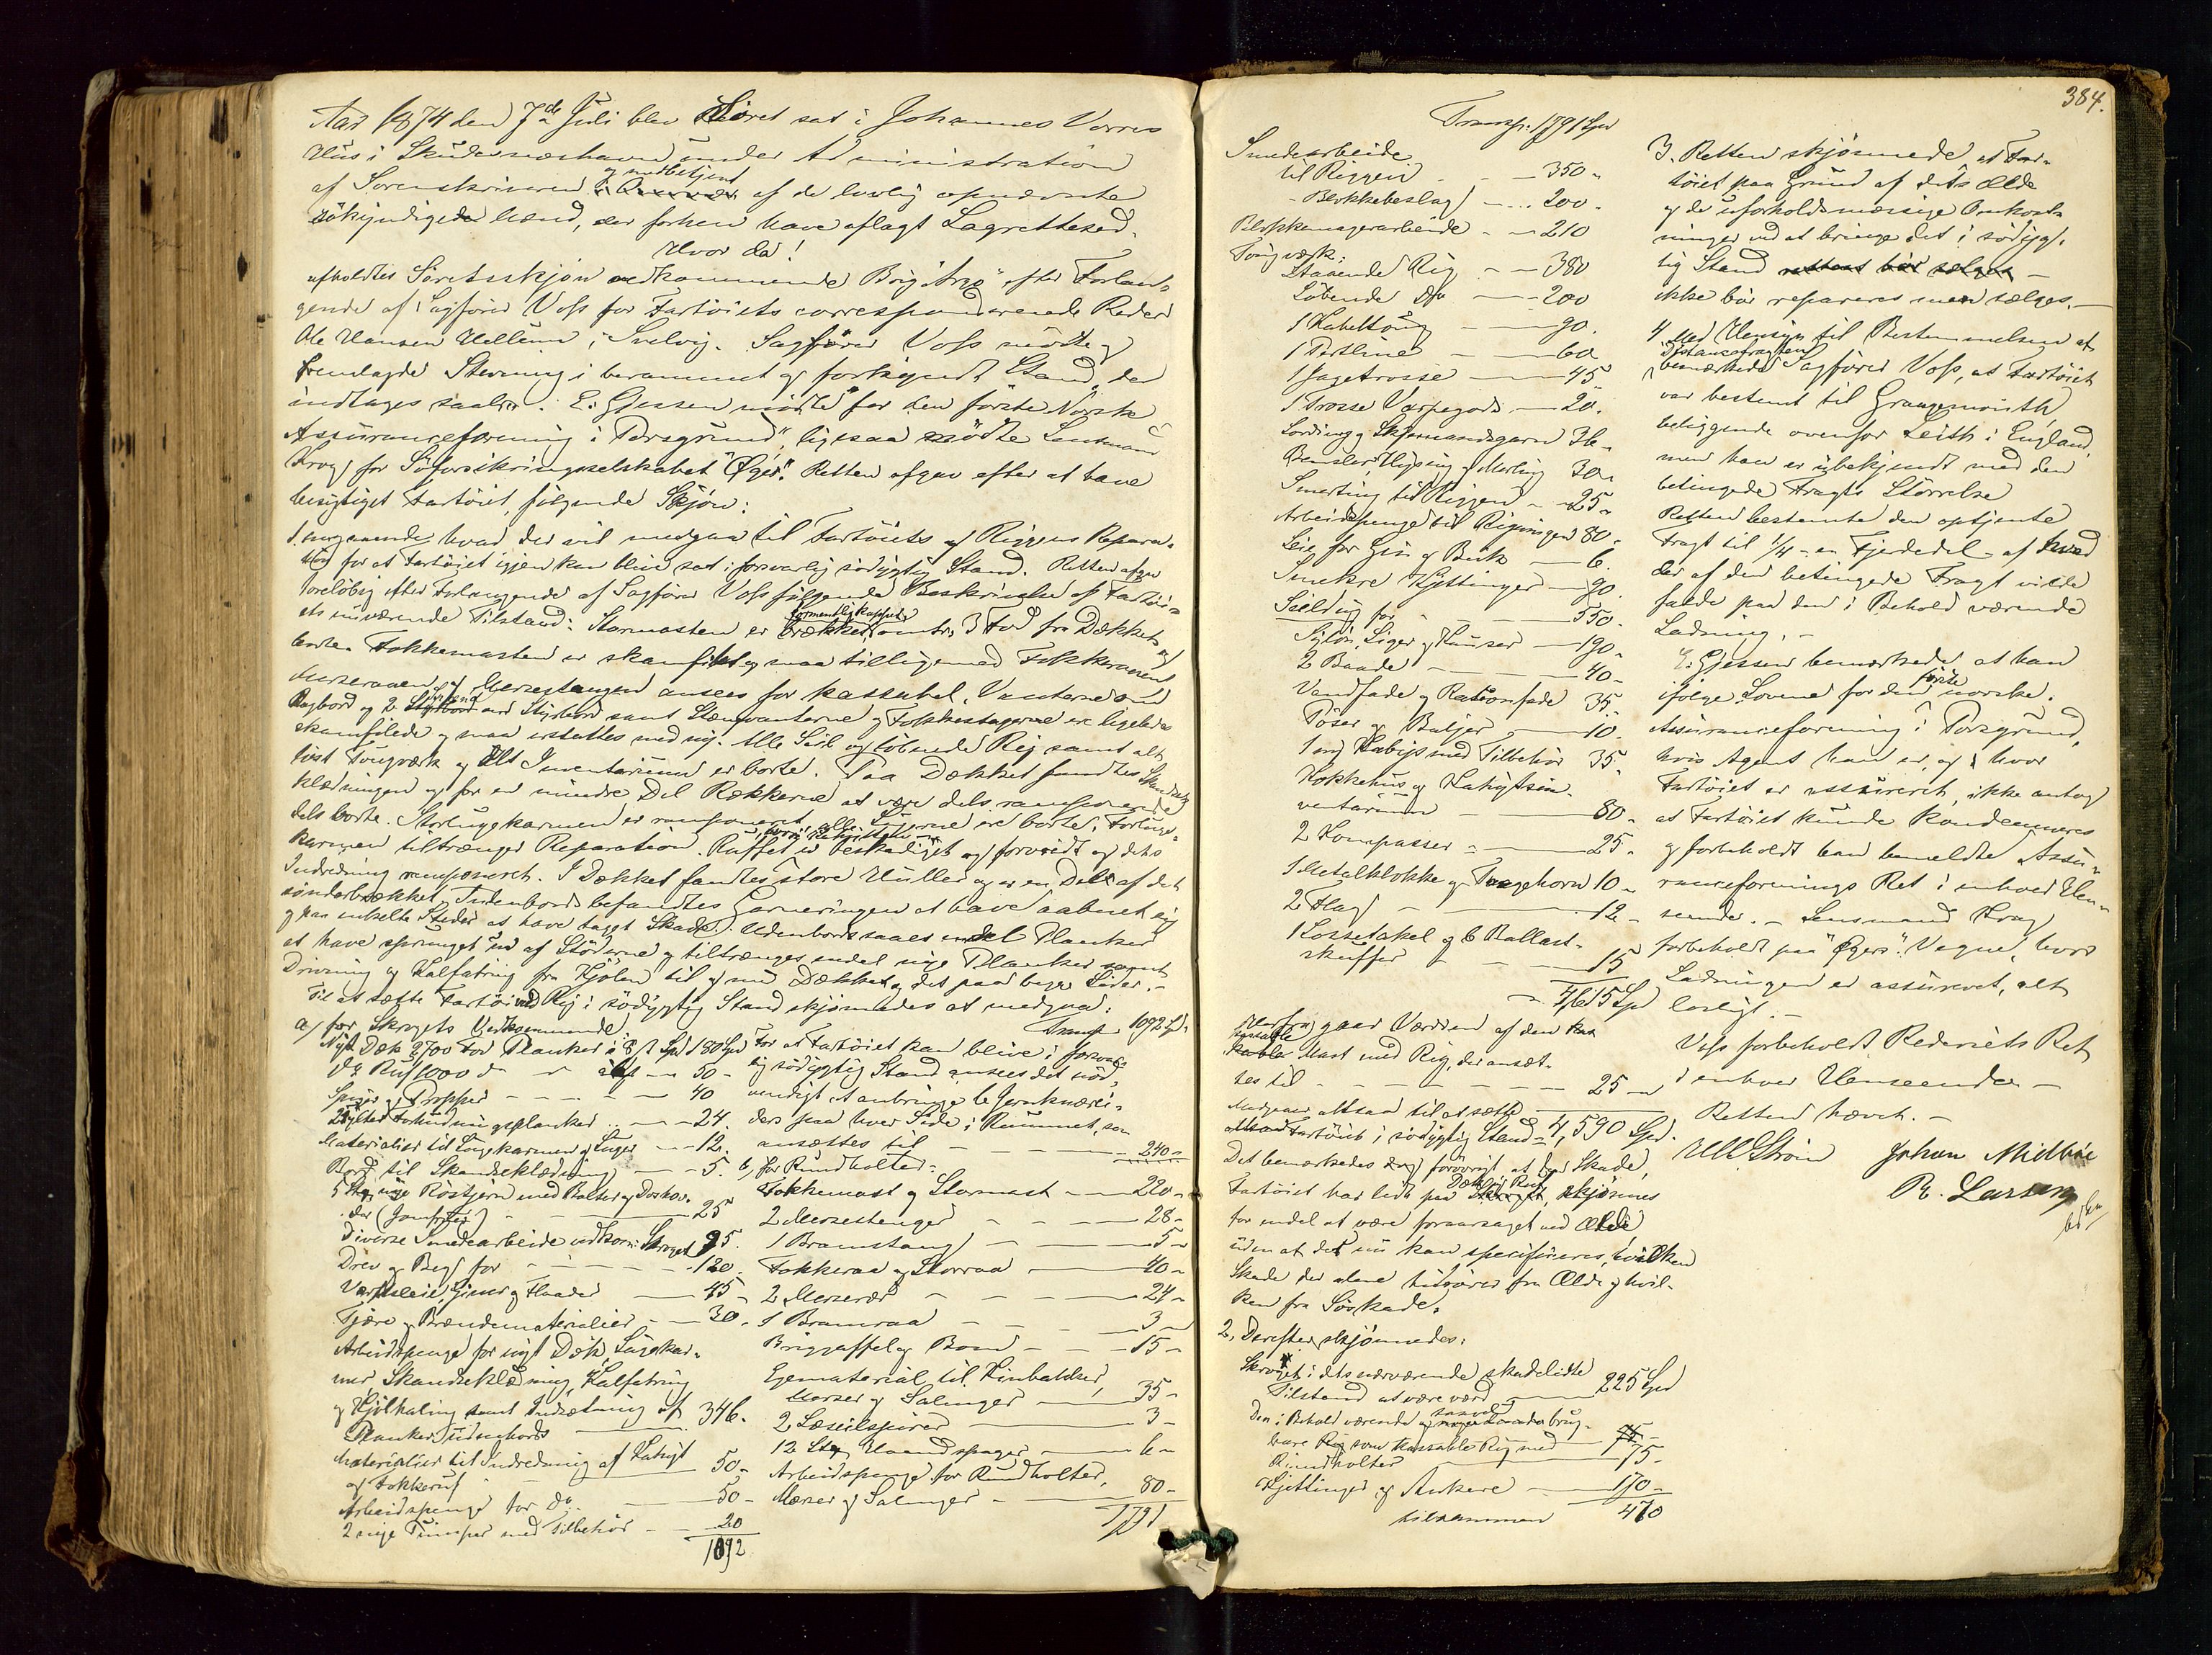 Aar 1874 den 7de Juli blev Söret sat i Johannes Vorres
Huus i Skudesneshavn under Administration
af Sorenskriveren og medbetjent af de lovlig opnævnte
sökyndige Mænd, der forhen have aflagt Lagrettesed.
Hvor da!
afholdtes Söretsskjön vedkommende Brig "Argo" efter Forlan-
gende af Sagförer Voss for Fartöiets correspondarende Reder
Ole Hansen Hellum i Svelvig. Sagförer Voss mödte og
fremlagde Stevning i berammet og forkyndt Stand, der
indtages saaledes. E. Gjessen mödte for den förste Norske
Assuranceforening i Porsgrund", ligesaa mödte Lensmand
Krog for Söforsikringsselskabet "Øger". Retten afgav efter at have
besigtiget Fartöiet, fölgende Skjön:
1. angaaende hvad der vil medgaa til Fartöiets og Riggens Repara-
tion for at Fartöiet igjen kan blive sat i forsvarlig södygtig Stand. Retten afgav
foreløbig efter Forlangende af Sagförer Voss fölgende Beskrivelse af Fartöi-
ets nuværende Tilstand: Stormasten er formentlig kappet brækket omtr. 3 Fod fra Dækket og
borte. Fokkemasten er skamfilet og maa tilligemed Fokkeraaen,
Merseraaen og Mersestangen ansees for kassabel. Vanterne om
Bagbord og 2 om Styrbord samt Stængvanterne og Fokkestagene ere ligeledes
skamfilede og maa erstattes med nij. Alle Seil og löbende Rig samt alt
löst Tougværk og Alt Inventarium er borte. Paa Dækket fandtes Skandse-
klædningen og for en mindre Del Rækkerne at være dels ramponerede
dels borte. Storlugekarmen er ramponeret, alle Lugerne ere borte. Forluge-
karmen tiltrænger Reparation. Ruffet er beskadiget og forvridt og dets
Indredning ramponeret. I Dækket fandtes store Huller og er en Del af det
sönderbrækket. Indenbords befandtes Garneringen at have aabnet sig
og paa enkelte Steder at have taget Skade. Udenbords saaes endel Planker
at have sprunget ud af Stöderne og tiltrænges endel nije Planker samt
Drivning og Kalfatring fra Kjölen til og med Dækket og det paa begge Sider.-
Til at sætte Fartöi med Rig i södygtig Stand skjönnedes at medgaa:
a, for Skrogets Vedkommende:
Nyt Dæk 2700 Fod Planker 180 Spd
Do Ruf 1000 do - 50 -
Spiger og Propper - 40
Forhudningsplanker - 24.
Materialier til Lugekarmer og Luger - 12.
Bord til Skandseklædning - 5.
5 Stk. nije Röstjern med Bolter og Doskov-
der (Jomfruer) - 25
Diverse Smedearbeide vedkom: Skroget 95.
Drev og Beg for - 120.
Værftsleie, Giner og Flaader - 45 -
Tjære og Brændematerialier - 30.
Arbeidspenge for nyt Dæk Lugekar-
mer Skandseklædning, Kalfatring
og Kjölhaling samt Indsætning af 346.
Planker udenbords
Materialier til Indredning af Kahyt 50.
og Fokkeruf
Arbeidspenge for do. - 50 -
2 nije Pumper med Tilbehör - 20
1092
Transp 1092 Spd.
For at Fartöiet kan blive i forsvar-
lig södygtig Stand ansees det nöd-
vendigt at anbringe 6 Jernknæer i-
ders paa hver Side i Rummet, som
ansættes til - 240 -
b, for Rundholter:
Fokkemast og Stormast - 220 -
2 Mersestenger - 28 -
1 Bramstang - 5 -
Fokkeraa og Storraa - 40 -
2 Merseræer - 24 -
1 Bramraa - 3 -
Briggaffel og Bom - 15 -
Egematerial til Kinbakker,
Merser og Salinger - 35 -
2 Læseilspirer - 3 -
12 Stk Haandspager - 6 -
Arbeidspenge for Rundholter,
Merser og Salinger - 80 -
1791
384.
Transp: 1791 Spd
Smedearbeide
til Riggen - 350 -
- Blokkebeslag - 200 -
Blokkemagerarbeide - 210
Tougværk:
Staaende Rig - 380
Löbende do - 200
1 Kabeltoug - 90.
1 Pertline - 60
1 Jagetrosse - 45
1 Trosse Varpegods - 20.
Lording og Skjemandsgarn 36 -
Bensler, Hysing og Merling 30 -
Smerting til Riggen - 25 -
Arbeidspenge til Rigningen 80 -
Leie for Gin og Buk - 6.
Smekre Kjettinger - 90.
Seildug for - 550 -
Syløn, Liger og Kouser - 190 -
2 Baade - 40 -
Vandfade og Rationsfade 35 -
Pöser og Baljer - 10 -
1 ny Kabys med Tilbehör 35 -
Kokkehus og Kahytsin-
ventarium - 80 -
2 Kompasser - 25 -
1 Metalklokke og Taagehorn 10 -
2 Flag - 12 -
1 Lossetakel og 6 Ballast-
skuffer - 15
4615 Spd
Herfra gaar Værdien af den kas-
sable Mast med Rig, der ansæt-
tes til - 25 -
Medgaar altsaa til at sætte
Fartöiet i södygtig Stand = 4,590 Spd.
Det bemærkedes dog forövrigt at den Skade,
Fartöiet har lidt paa Dæk og Ruf, skjönnes
for endel at være foraarsaget ved Ælde
uden at det nu kan specificeres, hvilken
Skade der alene hidrörer fra Ælde og hvil-
ken fra Söskade.
2, Derefter skjönnedes:
Skroget i dets nærværende skadelidte
Tilstand at være værd - 225 Spd
Den i Behold værende brug-
bare Rig som kassable Rig med
Rundholter - 75 -
Kjettinger og Ankere - 170 -
tilsammen 470
3. Retten skjönnede, at Far-
töiet paa Grund af dets Ælde
og de uforholdsmæssige Omkost-
ninger ved at bringe det i södyg-
tig Stand rettest bör sælges -
ikke bör repareres men sælges. -
4. Med Hensyn til Bestemmelsen af
Distancefragten
bemærkede Sagförer Voss, at Fartöiet
var bestemt til Grangemouth,
beliggende ovenfor Leith i England,
men han er ubekjendt med den
betingede Fragts Störrelse
Retten bestemte den optjente
Fragt til 1/4 - en Fjerdedel - af hvad
der af den betingede Fragt vilde
falde paa den i Behold værende
Ladning. -
E. Gjessen bemærkede, at han
ifölge Lovene for den förste norske
Assuranceforening i Porsgrund,
hvis Agent han er, og hvor
Fartöiet er assureret, ikke antog
at Fartöiet kunde kondemneres
og forbeholdt han bemeldte Assu-
ranceforenings Ret i enhver Hen-
seende. - Lensmand Krog
forbeholdt paa "Øgers" Vegne, hvor
Ladningen er assureret, alt
lovligt. -
Voss forbeholdt Rederiets Ret
i enhver Henseende. -
Retten hævet. -
Johan Midböe
R. Larsen